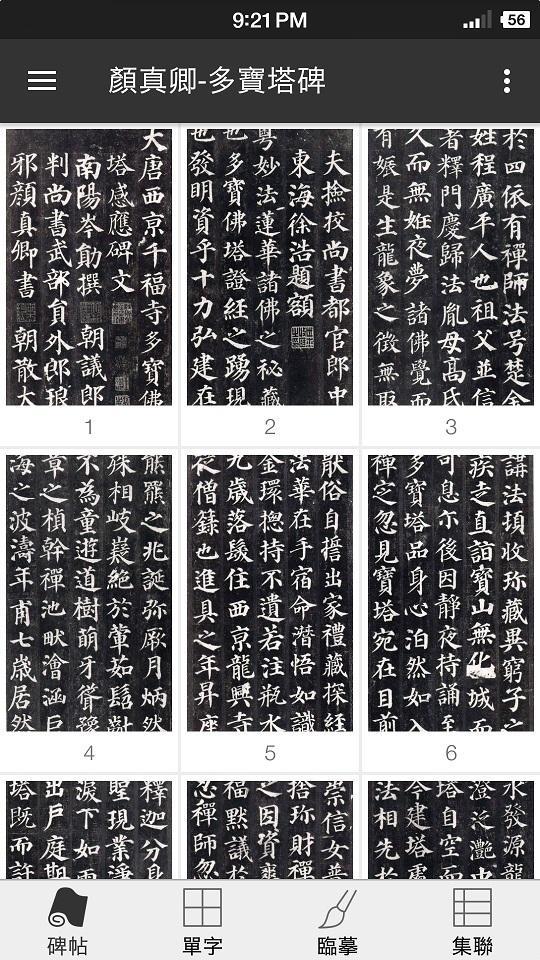 9:21 PM
56
顏真卿-多寶塔碑
大唐西京千福寺多寶佛
塔感應碑文
南陽岑勛撰 朝議郎
判尚書武部員外郎琅
邪顏真卿書 朝散大
1
夫撿挍尚書都官郎中
東海徐浩題額
粵妙法蓮華諸佛之秘藏
也多寶佛塔證經之踴現
也發明資乎十力弘建在
2
於四依有禪師法号楚金
姓程廣平人也祖父並信
著釋門慶歸法胤母高氏
久而無姙夜夢諸佛覺而
有娠是生龍象之徵無取
3
熊羆之兆誕弥厥月炳然
殊相岐嶷絕於葷茹髫齔
不為童遊道樹萌牙聳豫
章之楨幹禪池畎澮涵巨
海之波濤年甫七歲居然
4
猒俗自誓出家禮藏探經
法華在手宿命潛悟如識
金環揔持不遺若注瓶水
九歲落髮住西京龍興寺
從僧籙也進具之年昇座
5
講法頓收珎藏異窮子之
疾走直詣寶山無化城而
可息尒後因靜夜持誦至
多寶塔品身心泊然如入
禪定忽見寶塔宛在目前
6
釋迦分身
聖現業淨
淚下如雨
出戶庭期
塔既而許
崇信女普
捨珎財禪
之因資爽
福默議於
忽禪師忽
水發源龍
澄泛灔中
塔自空而
今建塔處
法相先於
碑帖
單字
臨摹
集聯